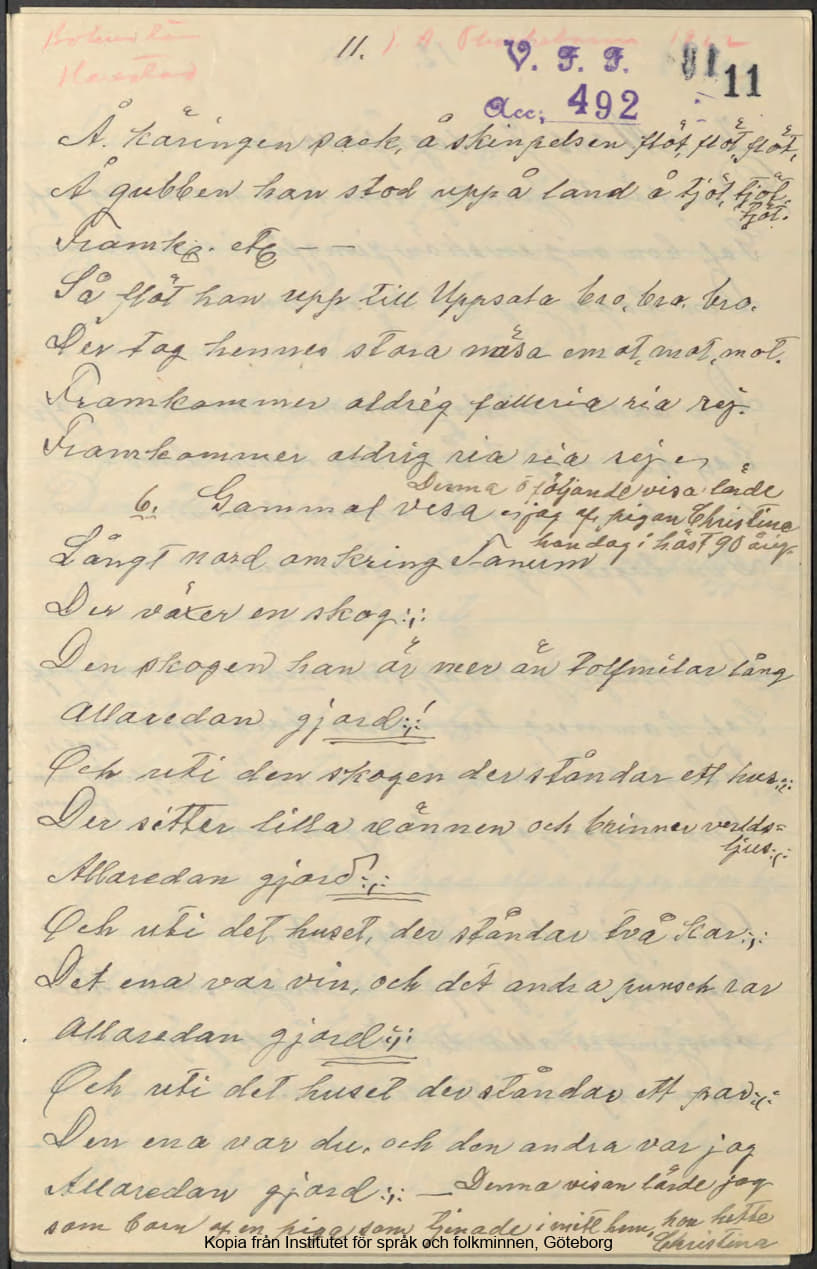 11.
V. F. F.
11
Acc; 492
Å. käringen sack, å skinpelsen flöt, flöt, flöt,
Å gubben han stod uppå land å tjöt, tjöt.
tjöt.
Framk. etc — —
Så flöt han upp till Uppsala bro, bro. bro.
Der tog hennes stora näsa emot, mot, mot.
Framkommer aldrig falleria ria rej.
Framkommer aldrig ria ria rej
Denna o följande visa lärde
6. Gammal visa jag af pigan Christina
hon dog i höst 90 årig.
Långt nord omkring Tanum
Der växer en skog:,:
Den skogen han är mer än tolfmilar lång
Allaredan gjord:,:
Och uti den skogen der ståndar ett hus:,:
Der sitter lilla vännen och brinner verlds=
ljus:,:
Allaredan gjord:,:
Och uti det huset, der ståndar två kar:,:
Det ena var vin, och det andra punsch rar
Allaredan gjord:,:
Och uti det huset der ståndar ett par:,:
Den ena var du, och den andra var jag
Allaredan gjord:,: — Denna visan lärde jag
som barn af en piga som tjenade i mitt hem, hon hette
Christina
Kopia från Institutet för språk och folkminnen, Göteborg